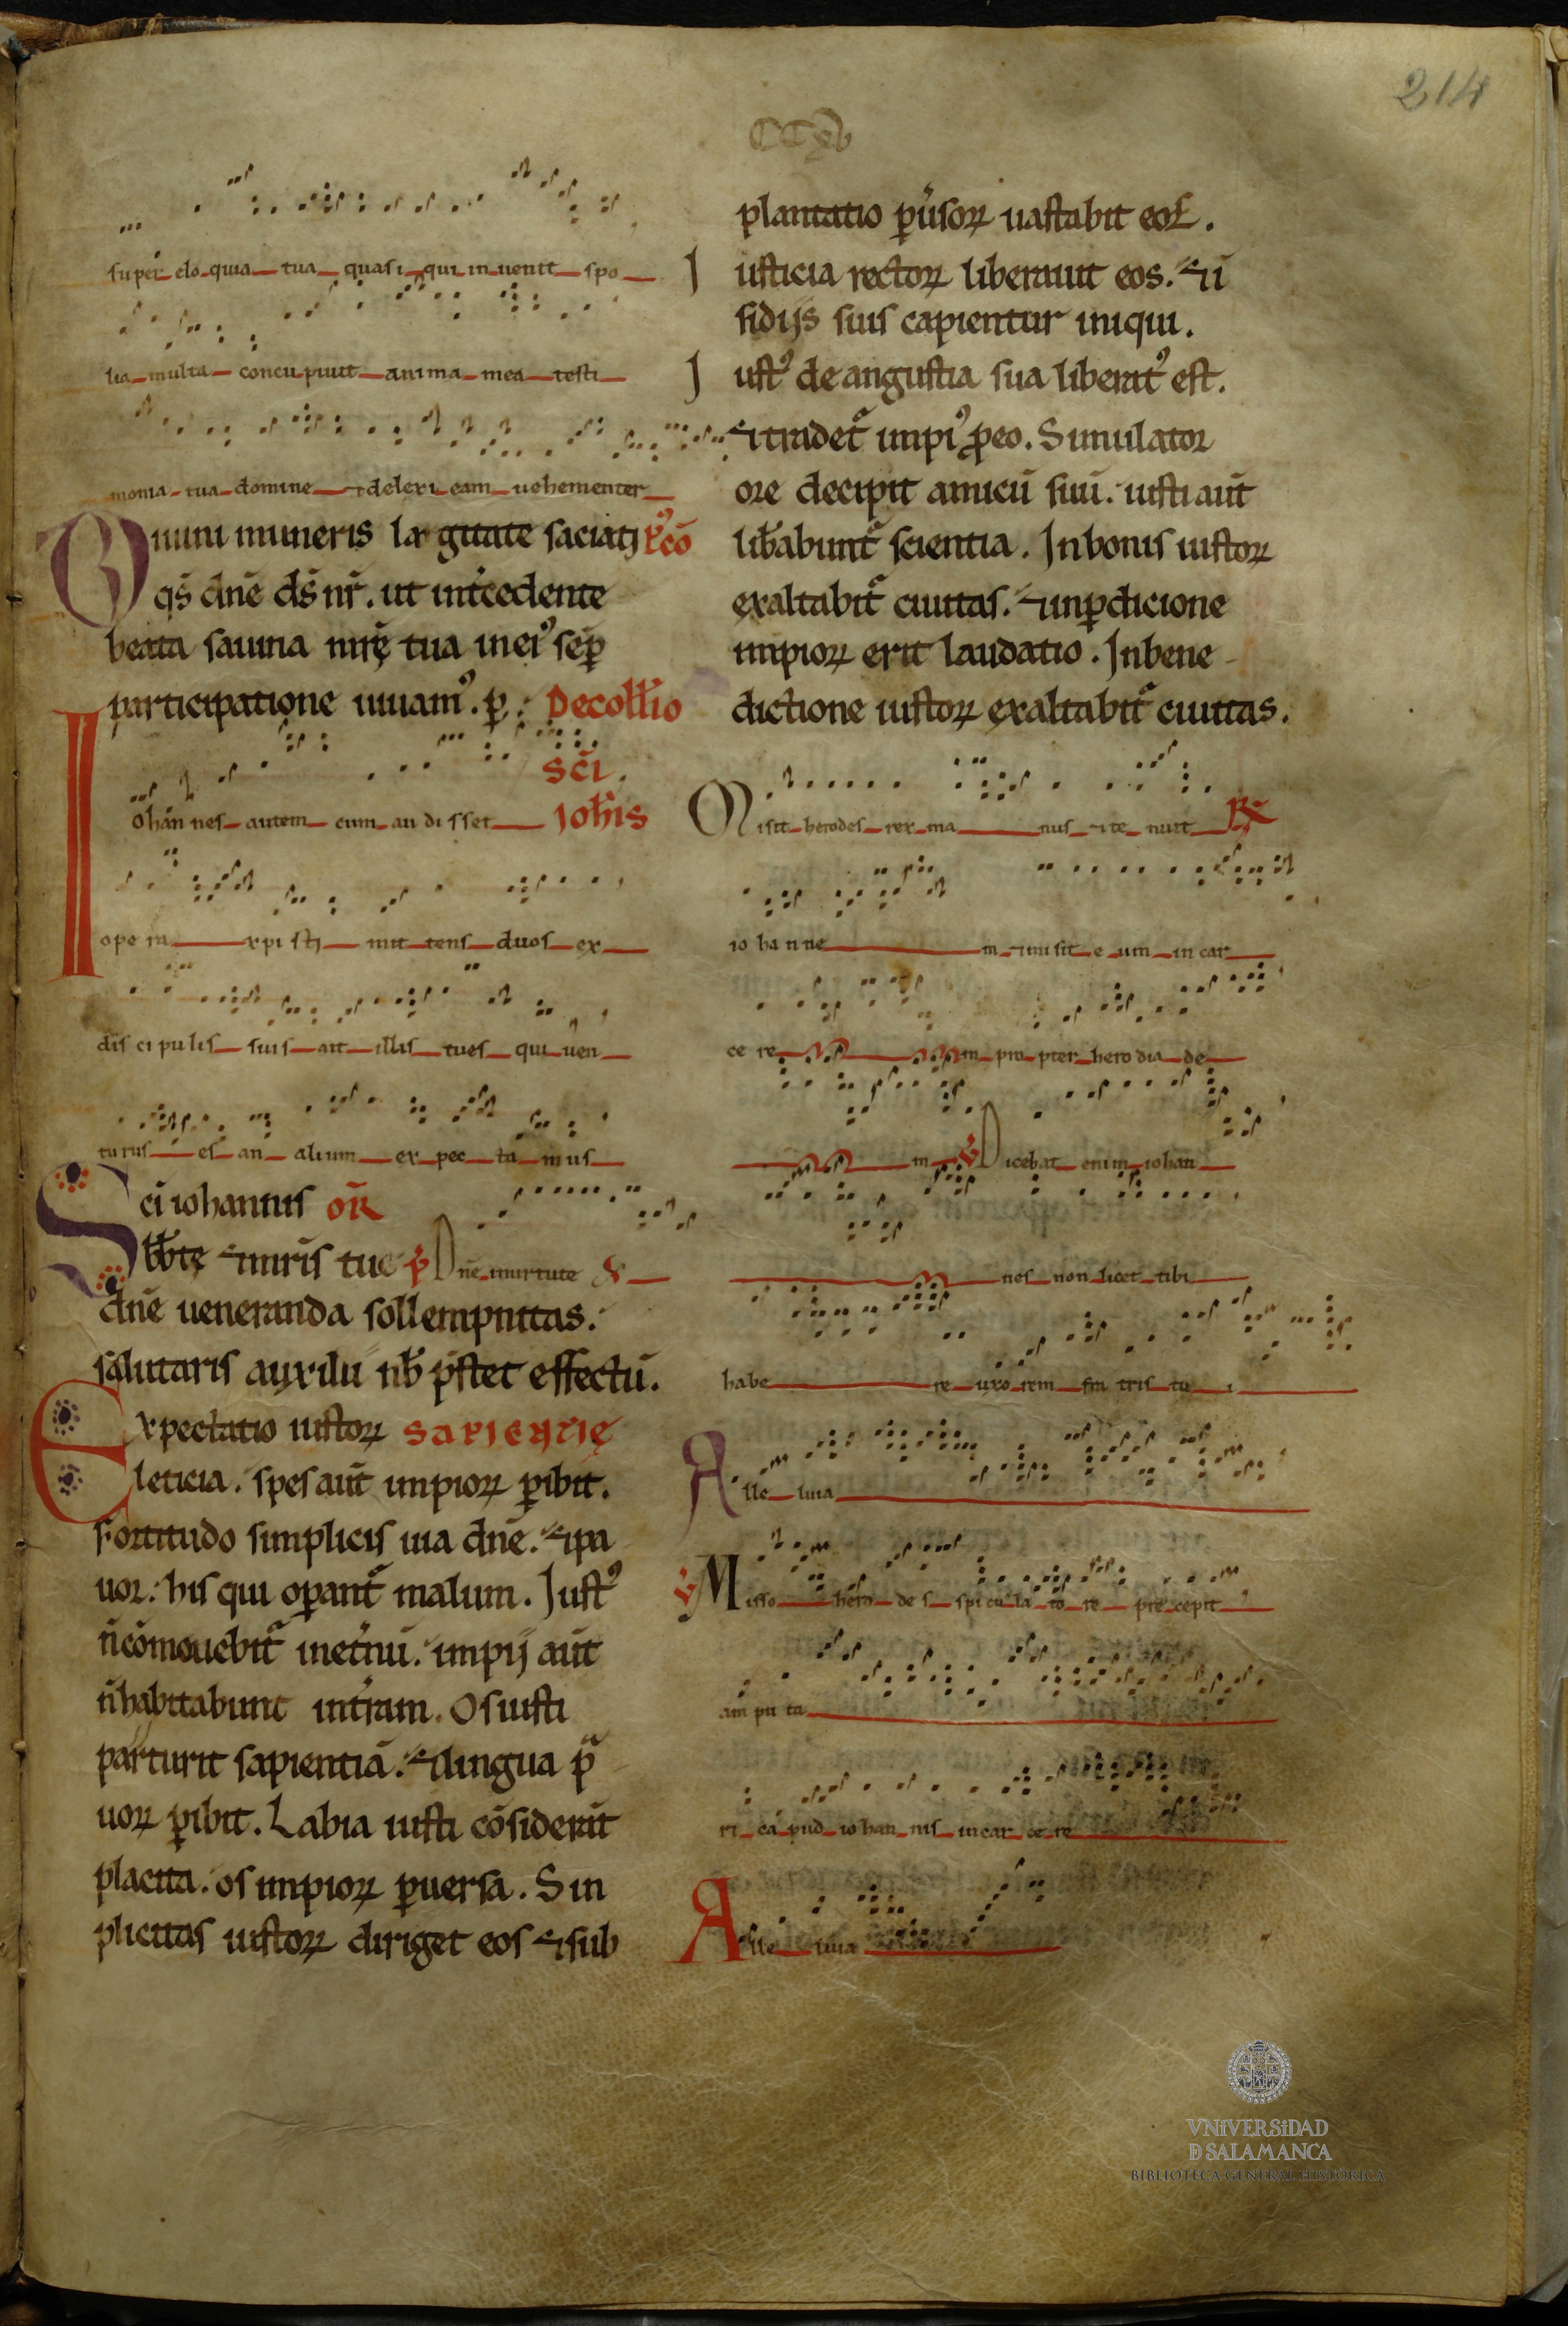 214
CCXV
super elo quia tua quasi qui inuenit spo
lia multa concupiuit anima mea testi
monia tua domine ⁊ dilexi eam uehementer
Diuini muneris largitate saciati p̾ cō
qs̄ dnē ds̄ nr̄. ut int̾cedente
beata sauina mr̄ę tua in ei⁹ sēp
participatione uiuam⁹. p̱. Decoll̄io
sc̄i
Iohan nes autem cum au di sset Ioh̄is
ope ra xpi sti mit tens duos ex
dis ci pulis suis ait illis tu es qui uen
turus es an alium ex pec ta mus
Sc̄i iohannis OR̄
bb̄tę ⁊ mr̄is tuę p̾ Dnē in uirtute
dnē ueneranda sollempnitas.
salutaris auxilii nb̄ p̄stet effectū.
Expectatio iustoꝝ SAPIENTIĘ
leticia. spes aūt impioꝝ ꝑibit.
Fortitudo simplicis uia dnē. ⁊ pa
uor: his qui oꝑant̾ malum. Iust⁹
n̄ cōmouebit̾ inet̾nū. impij aūt
n̄ habitabunt int̾ram. Os iusti
parturit sapientiā. ⁊ lingua pͣ
uoꝝ ꝑibit. Labia iusti cōsiderāt
placita. os impioꝝ ꝑuersa. Sin
plicitas iustoꝝ diriget eos ⁊ sub
plantatio ꝑu̾soꝝ uastabit eos.
Iusticia rectoꝝ liberauit eos. ⁊ ī
sidijs suis capientur iniqui.
Iust⁹ de angustia sua liberat⁹ est.
⁊ tradet̾ impi⁹ ꝓ eo. Simulator
ore decipit amicū suū. iusti aūt
lib̄abunt̾ scientia. In bonis iustoꝝ
exaltabit̾ ciuitas. ⁊ in ꝑdicione
impioꝝ erit laudatio. In bene
dictione iustoꝝ exaltabit̾ ciuitas.
Misit herodes rex ma nus ⁊ te nuit R̄
io ha n ne m ⁊ misit e um in car
ce re m pro pter hero dia de
m ℣ Dicebat enim iohan
nes non licet tibi
habe re uxo rem fra tris tu i
Alle luia
℣ Misso hero de s spi cu la to re pre cepit
am pu ta
ri ca pud iohan nis in car ce re
Alle luia
VNiVERSiDAD
D SALAMANCA
BIBLIOTECA GENERAL HISTÓRICA